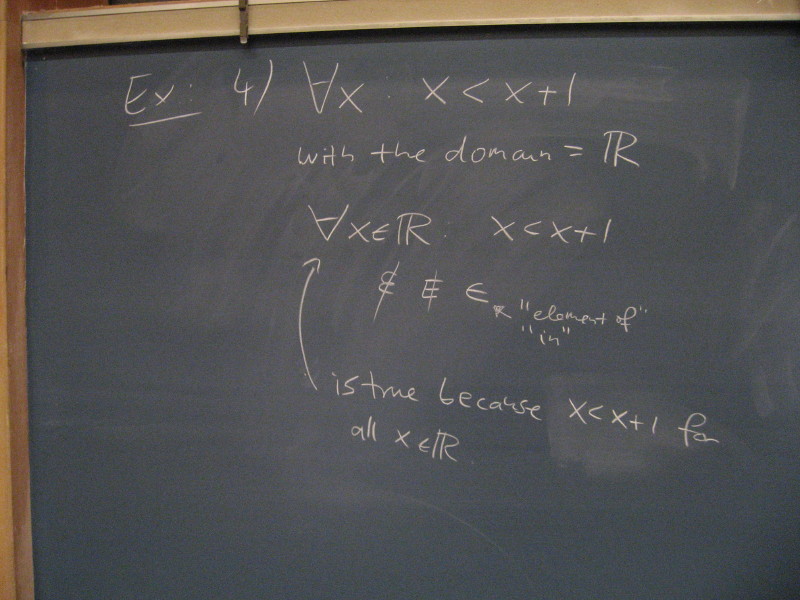 Ex: 4) ∀x : x < x+1
with the domain = ℝ
∀x∈ℝ : x < x+1
∉ ∉ ∈ "element of"
"in"
is true because x<x+1 for
all x∈ℝ.